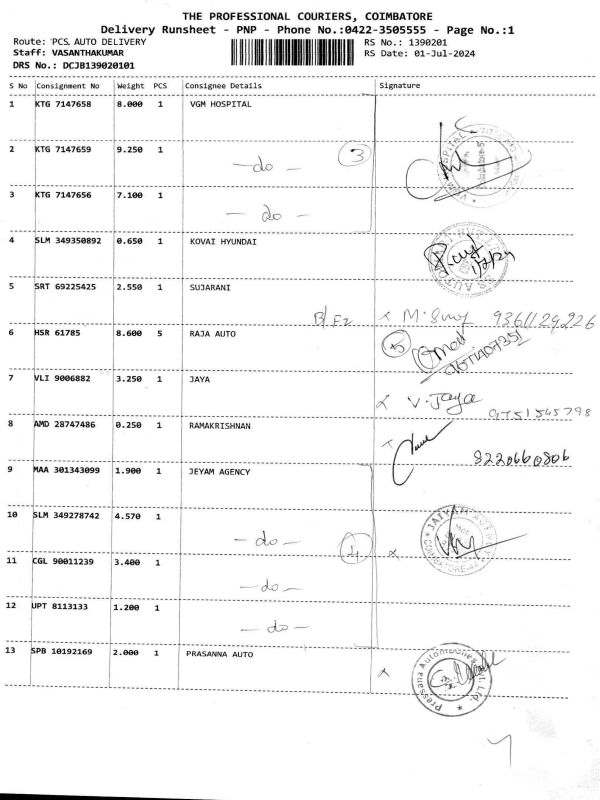 THE PROFESSIONAL COURIERS, COIMBATORE
Delivery Runsheet - PNP - Phone No.:0422-3505555 - Page No.:1
Route: PCS, AUTO DELIVERY
RS No.: 1390201
Staff: VASANTHAKUMAR
RS Date: 01-Jul-2024
DRS No.: DCJB139020101
S No Consignment No Weight PCS Consignee Details Signature
1 KTG 7147658 8.000 1 VGM HOSPITAL
2 KTG 7147659 9.250 1 -do- 3
3 KTG 7147656 7.100 1 -do-
4 SLM 349350892 0.650 1 KOVAI HYUNDAI
5 SRT 69225425 2.550 1 SUJARANI
6 HSR 61785 8.600 5 RAJA AUTO 5
7 VLI 9006882 3.250 1 JAYA V. Jaya 9751545798
8 AMD 28747486 0.250 1 RAMAKRISHNAN 8220660806
9 MAA 301343099 1.900 1 JEYAM AGENCY
10 SLM 349278742 4.570 1 -do- 4
11 CGL 90011239 3.400 1 -do-
12 UPT 8113133 1.200 1 -do-
13 SPB 10192169 2.000 1 PRASANNA AUTO